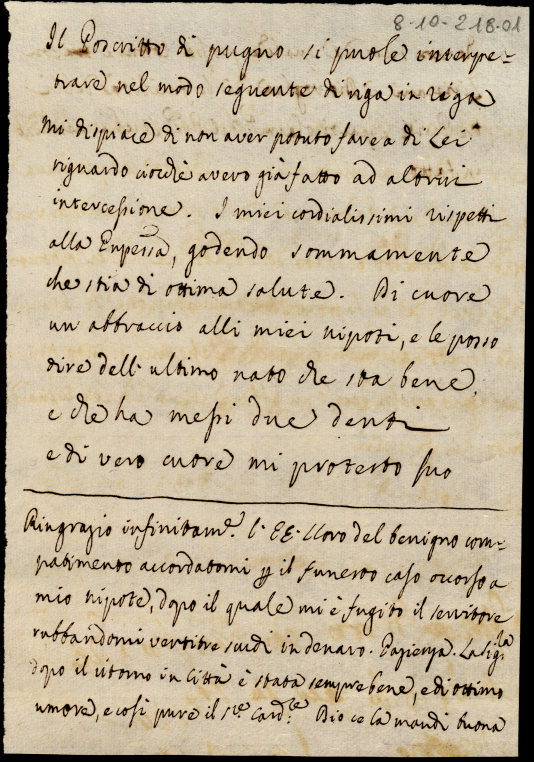 8-10-218.01
Il Poscritto di pugno si puole interpe-
trare nel modo seguente di riga in riga
Mi dispiace di non aver potuto fare a di Lei
riguardo ciocchè avevo già fatto ad altrui
intercessione. I miei cordialissimi rispetti
alla godendo sommamente
che stia di ottima salute. Di cuore
un abbraccio alli miei nipoti, e le posso
dire dell' ultimo nato che sta bene
e che ha messi due denti
e di vero cuore mi protesto suo
Ringrazio infinitam.e l' EE. Lloro del benigno com-
patimento accordatomi p il funesto caso occorso a
mio nipote, dopo il quale mi è fugito il servitore
rubbandomi ventitre scudi in denaro. Pazienza. La Sig.la
dopo il ritorno in Città è stata sempre bene, e di ottimo
umore, e così pure il S.re Card.le Dio ce la mandi buona